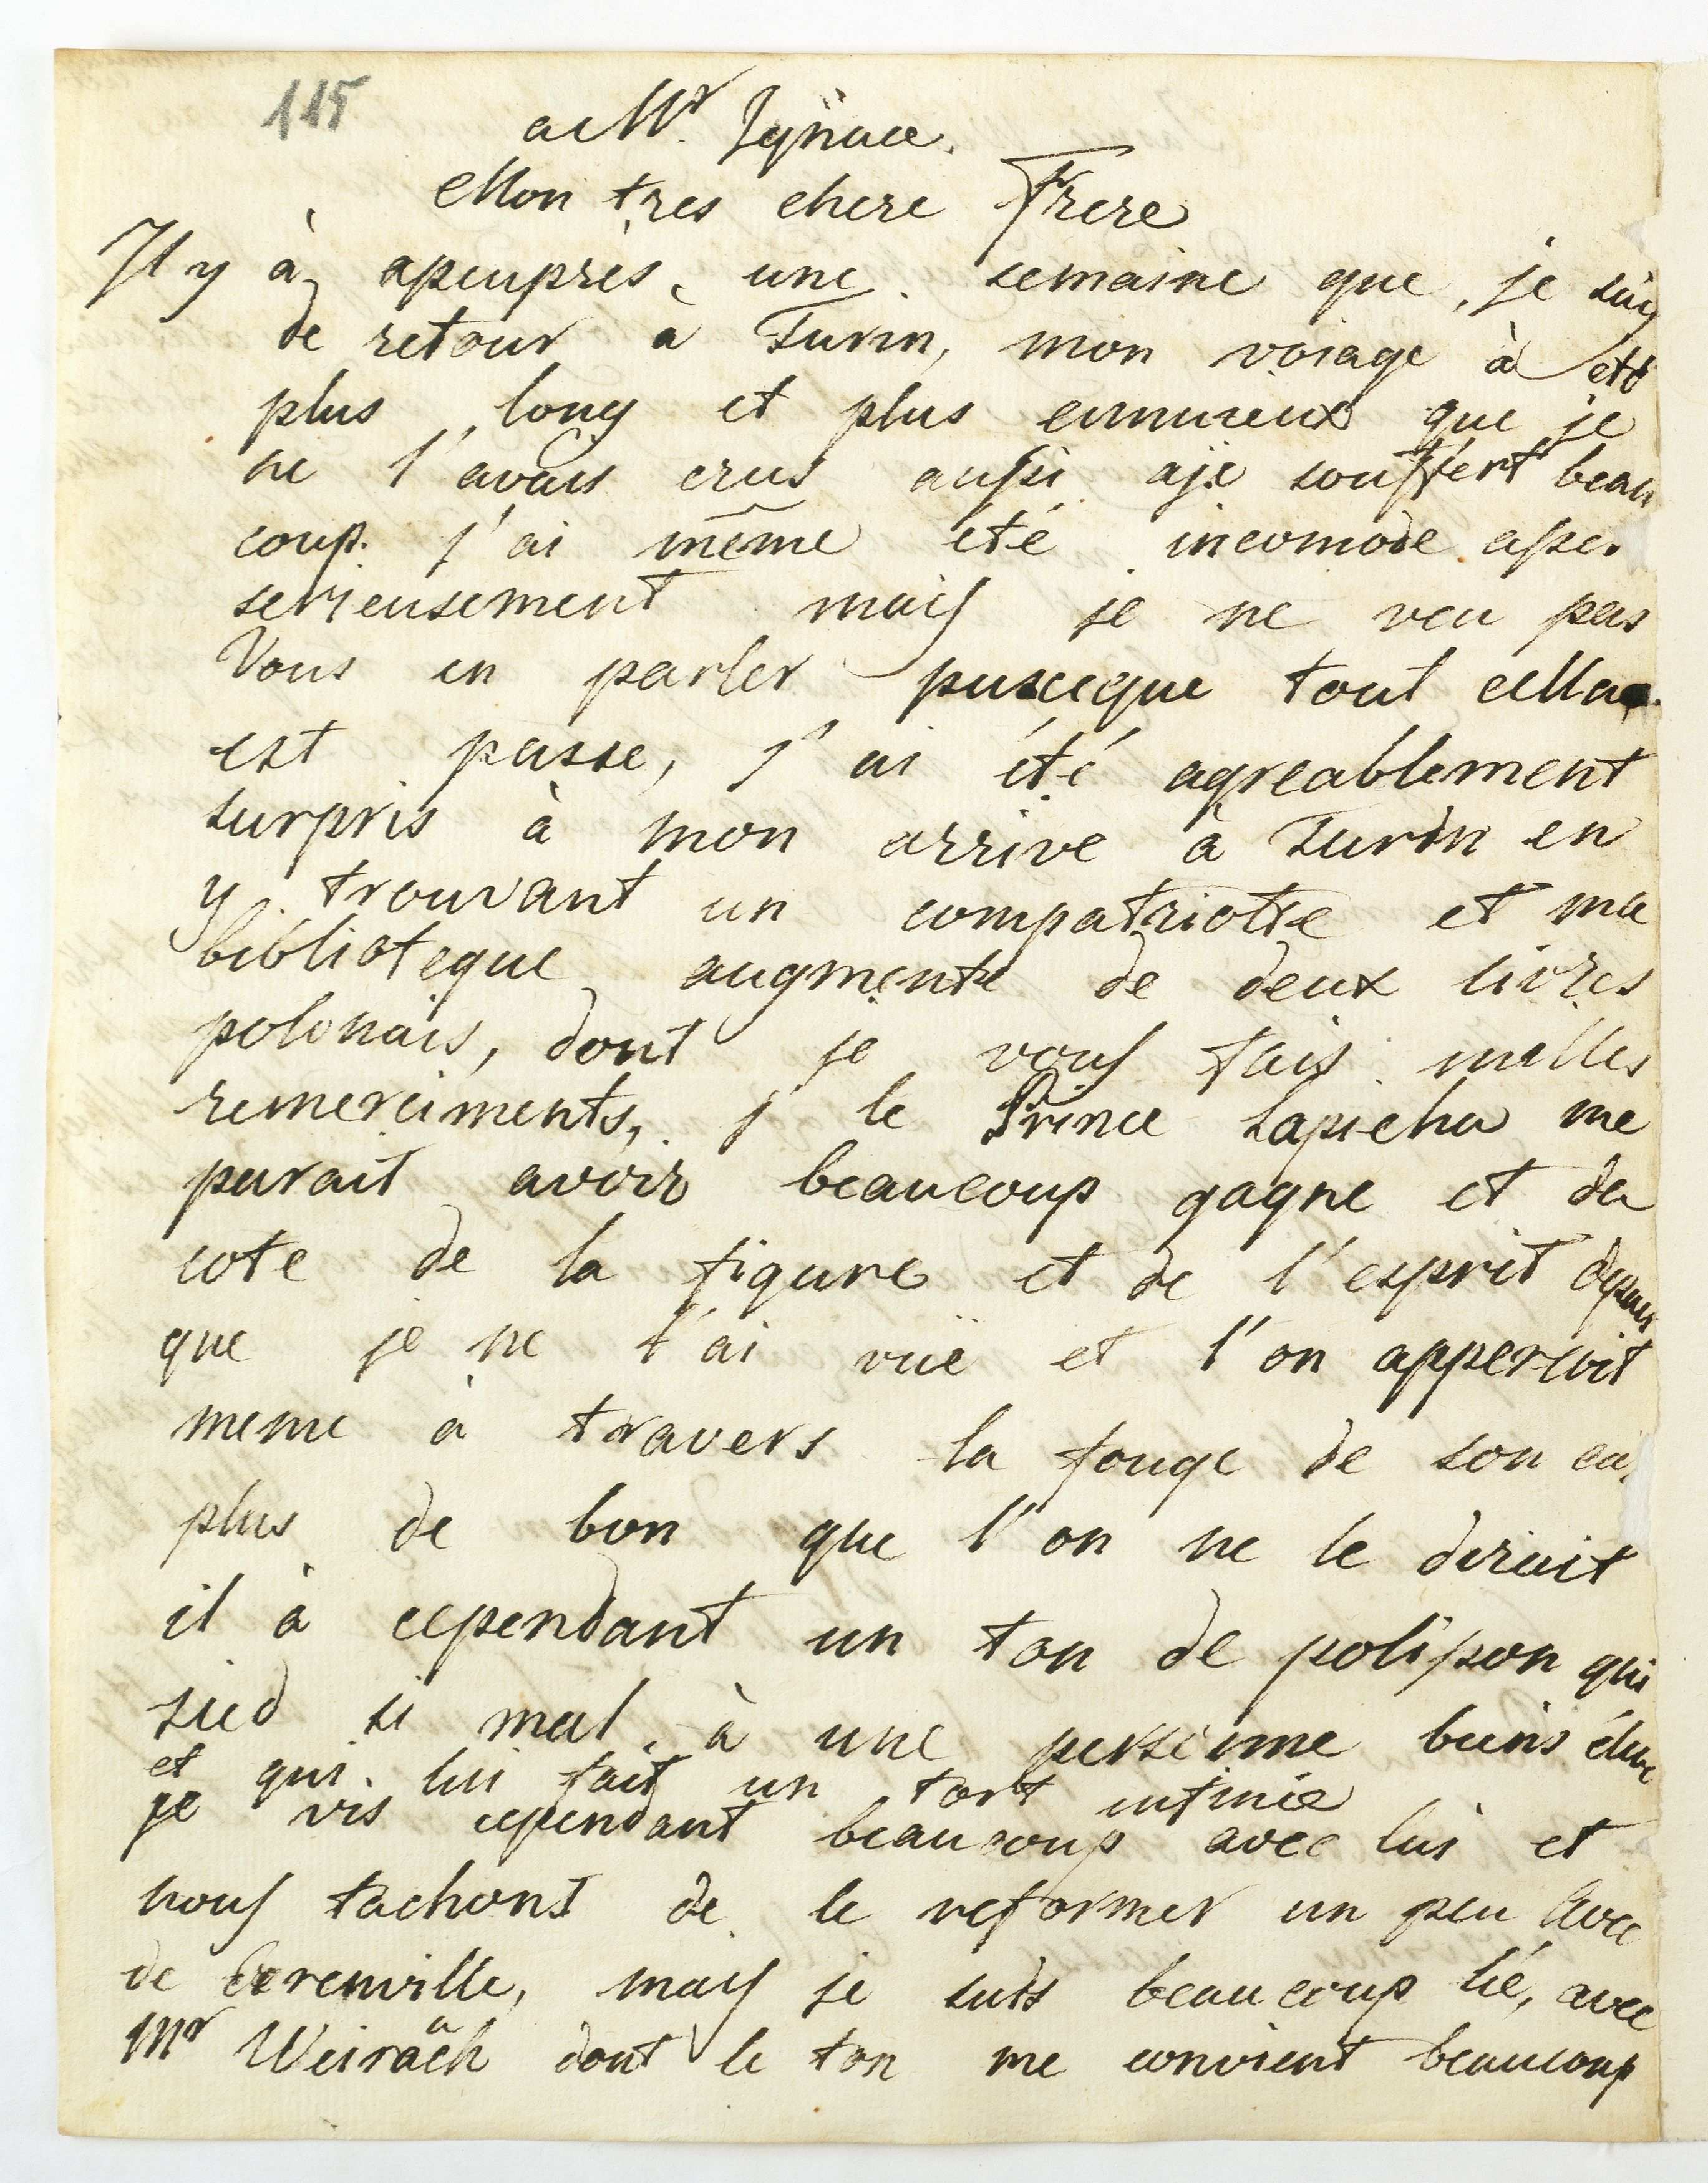 115
a Mr. Jgnace.
Mon tres chere Frere
Il y à apeuprès une semaine que je suis
de retour a Turin, mon voiage à eté
plus long et plus ennuieux que je
ne l'avais crus aussi aje souffert beau
coup. j'ai même été incomode assez
serieusement mais je ne veu pas
Vous en parler pusceque tout cella
est passe, j'ai été agreablement
surpris à mon arrive a Turin en
y trouvant un compatriotte et ma
biblioteque augmente de deux livres
polonais, dont je vous fais milles
remerciments, j le Prince Sapieha me
parait avoir beaucoup gagne et du
cote de la figure et de l'esprit depuis
que je ne l'ai vüe et l'on appercoit
meme a travers la fouge de son
plus de bon que l'on ne le diroit
il à cependant un ton de polisson qui
sied si mal à une personne buins
et qui lui fait un tort infinie
je vis cependant beaucoup avec lui et
nous tachons de le reformer un peu avec
de Serenville, mais je suis beaucoup lié, avec
Mr Weirach dont le ton me convient beaucoup